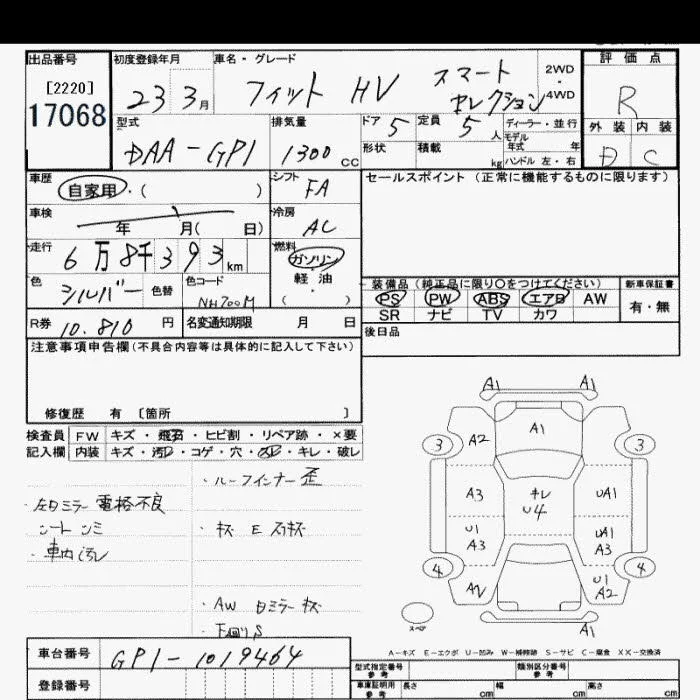 出品番号 初度登録年月 車名・グレード 評価点
[2220] 23 3月 フィット HV スマート セレクション 2WD 4WD R
17068 型式 排気量 ドア 5 定員 5人 ディーラー・並行 外装 内装
DAA-GP1 1300cc 形状 積載 kg モデル年式 年 ハンドル 左・右 D C
車歴 自家用・( ) シフト FA セールスポイント (正常に機能するものに限ります)
車検 年 月( 日) 冷房 AC
走行 6万8千393km 燃料 ガソリン・軽油 ( )
色 シルバー 色替 色コード NH700M
装備品 (純正品に限り○をつけてください) 新車保証書
PS PW ABS エアB AW 有・無
SR ナビ TV カワ
R券 10.810円 名変通知期限 月 日 後日品
注意事項申告欄(不具合内容等は具体的に記入して下さい)
修復歴 有 [箇所 ]
検査員 FW キズ・飛石・ヒビ割・リペア跡・×要
記入欄 内装 キズ・汚レ・コゲ・穴・スレ・キレ・破レ
・ルーフインナー歪
・左Dミラー電格不良
・シートシミ
・車内汚レ
・AW
A1 A1
3 A2 A1 3
A3 キレ U4 UA1
U1 A3 UA1 A3
4 U1 A2 4
A1
スペア
A-キズ E-エクボ U-凹み W-補修跡 S-サビ C-腐食 XX-交換済
車台番号 GP1-1019464
型式指定番号 参考 類別区分番号 参考
登録番号 車庫証明用 参考 長さ cm 幅 cm 高さ cm